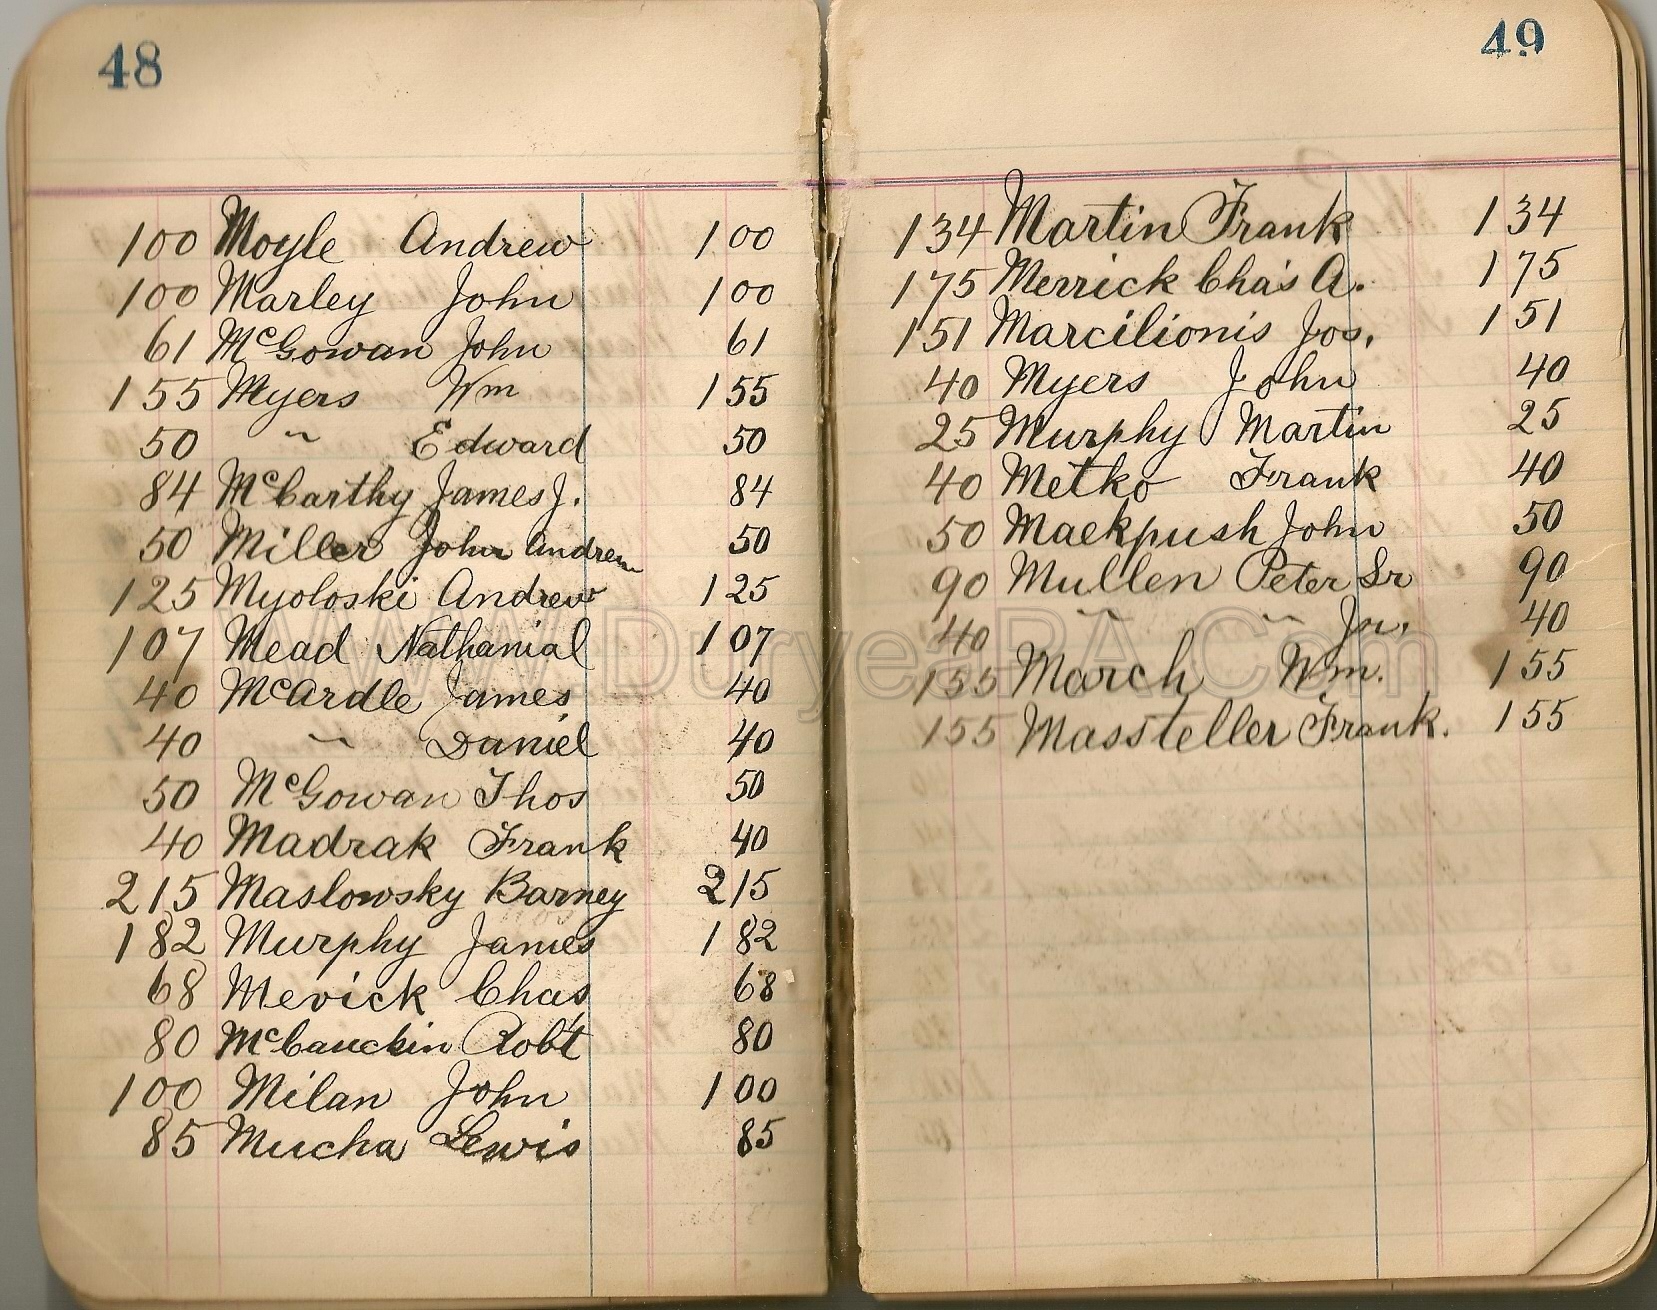 48
100 Moyle Andrew 100
100 Marley John 100
61 McGowan John 61
155 Myers Wm 155
50 " Edward 50
84 McCarthy James J. 84
50 Miller John Andrew 50
125 Myoloski Andrew 125
107 Mead Nathanial 107
40 McArdle James 40
40 " Daniel 40
50 McGowan Thos 50
40 Madrak Frank 40
215 Maslowsky Barney 215
182 Murphy James 182
68 Mevick Chas 68
80 McCauckin Robt 80
100 Milan John 100
85 Mucha Lewis 85
49
134 Martin Frank 134
175 Merrick Cha's A. 175
151 Marcilionis Jos. 151
40 Myers John 40
25 Murphy Martin 25
40 Metko Frank 40
50 Maekpush John 50
90 Mullen Peter Sr 90
40 " " Jr. 40
155 March Wm. 155
155 Massteller Frank. 155
www.DuryeaPA.Com